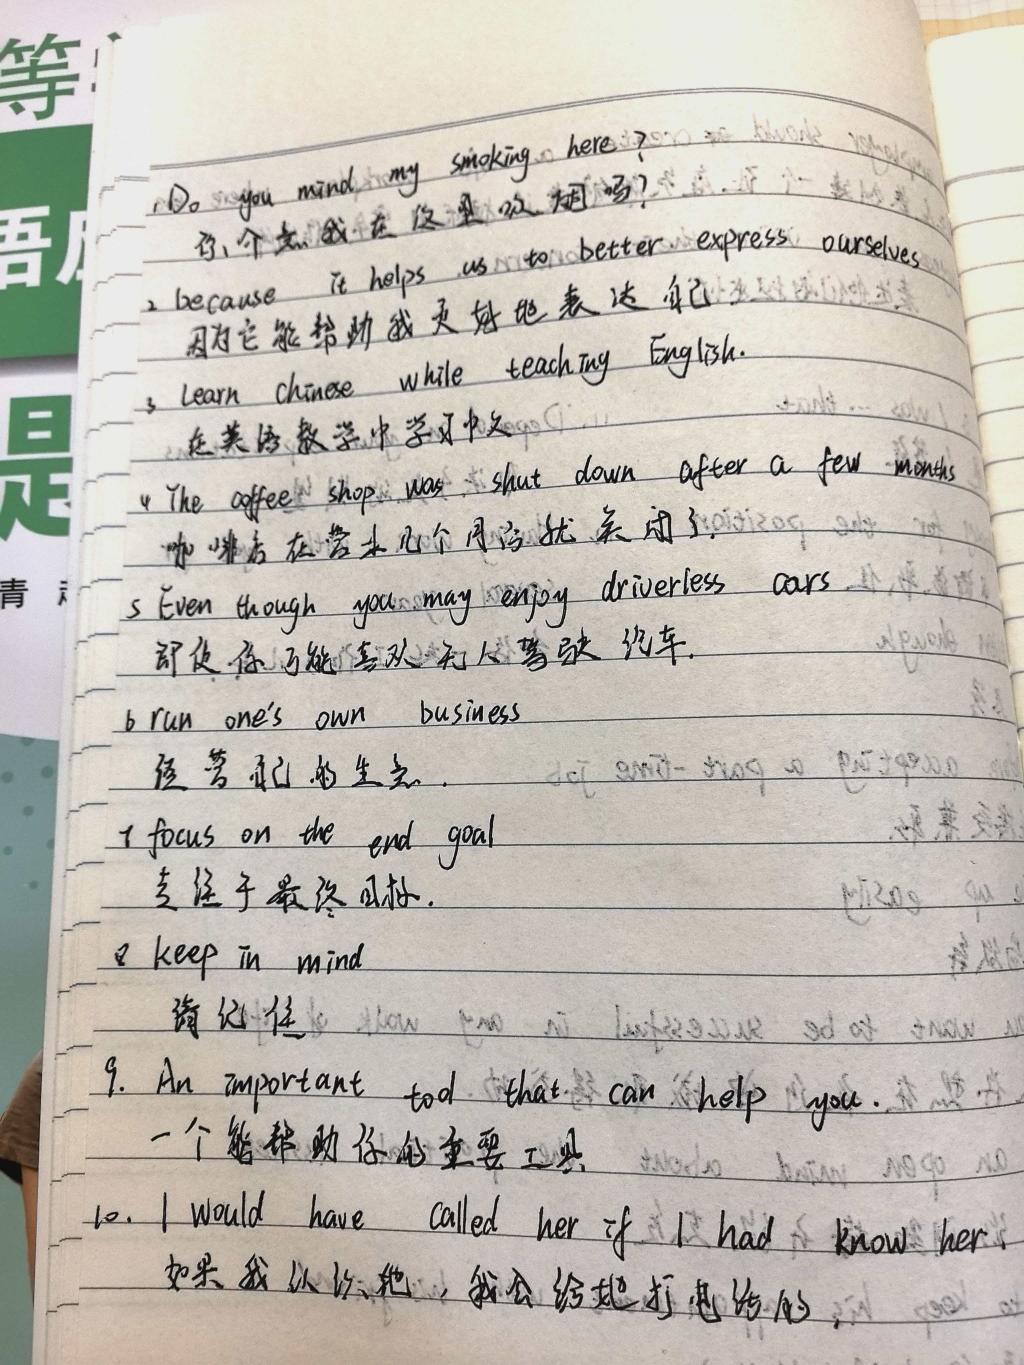 等
语
是
青
1. Do you mind my smoking here?
你介意我在这里吸烟吗?
2 because it helps us to better express ourselves
因为它能帮助我更好地表达自己
3 Learn chinese while teaching English.
在英语教学中学习中文
4 The coffee shop was shut down after a few months
咖啡店在营业几个月后就关闭了.
5 Even though you may enjoy driverless cars
即使你可能喜欢无人驾驶汽车.
6 run one's own business
经营自己的生意.
7 focus on the end goal
专注于最终目标.
8 keep in mind
请记住
9. An important tool that can help you.
一个能帮助你的重要工具.
10. I would have called her if I had know her.
如果我认识她,我会给她打电话的.